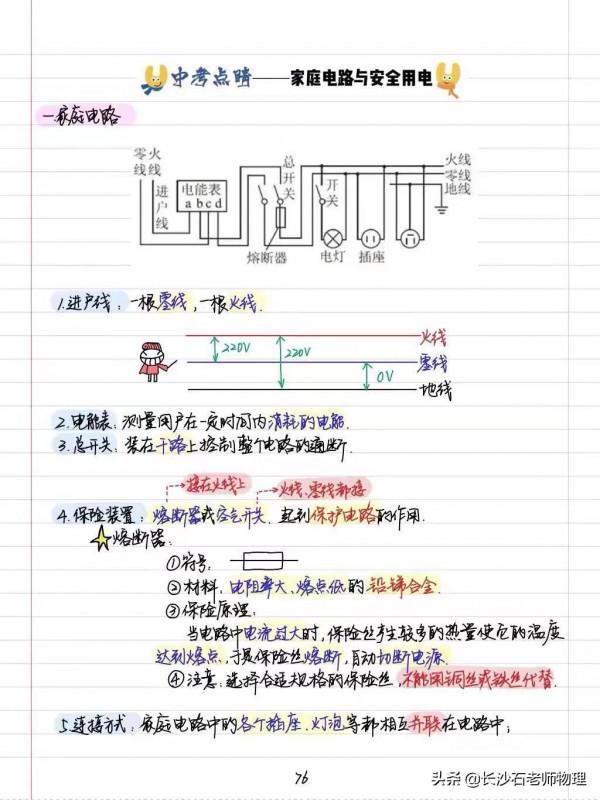 中考点睛——家庭电路与安全用电
一.家庭电路
零线 火线
进户线
电能表
a b c d
总开关
熔断器
开关
电灯
插座
火线
零线
地线
1.进户线：一根零线，一根火线.
火线
220V
220V
零线
0V
地线
2.电能表：测量用户在一定时间内消耗的电能.
3.总开关：装在干路上控制整个电路的通断.
接在火线上
火线、零线都接
4.保险装置：熔断器或空气开关.起到保护电路的作用.
熔断器：
①符号：
②材料：电阻率大、熔点低的铅锑合金.
③保险原理：
当电路中电流过大时，保险丝产生较多的热量使它的温度
达到熔点，于是保险丝熔断，自动切断电源.
④注意：选择合适规格的保险丝，不能用铜丝或铁丝代替.
5.连接方式：家庭电路中的各个插座、灯泡等都相互并联在电路中；
76
头条@长沙石老师物理